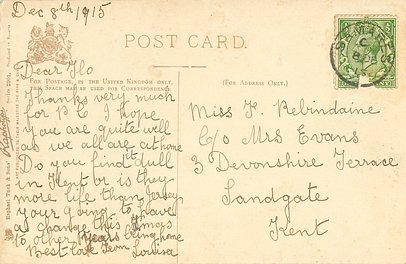 Dec 8th 1915
POST CARD.
FOR POSTAGE, IN THE UNITED KINGDOM ONLY,
THIS SPACE MAY BE USED FOR CORRESPONDENCE
(FOR ADDRESS ONLY.)
Dear Flo
Thanks very much
for P C I hope
you are quite well
as we all are at home
Do you find it dull
in Kent or is they
more life than Jersey
your going to have
a change this Xmas
to other years being home
Best love from Louisa
Miss F. Rebindaine
C/o Mrs Evans
3 Devonshire Terrace
Sandgate
Kent
Raphael Tuck & Sons